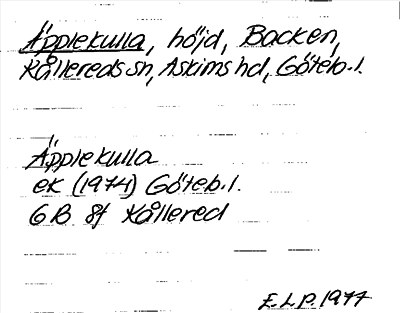 Äpplekulla, höjd, Backen,
Kållereds sn, Askims hd, Göteb. l.
Äpplekulla
ek (1974) Göteb. l.
6 B 8f Kållered
E.L.P. 1977